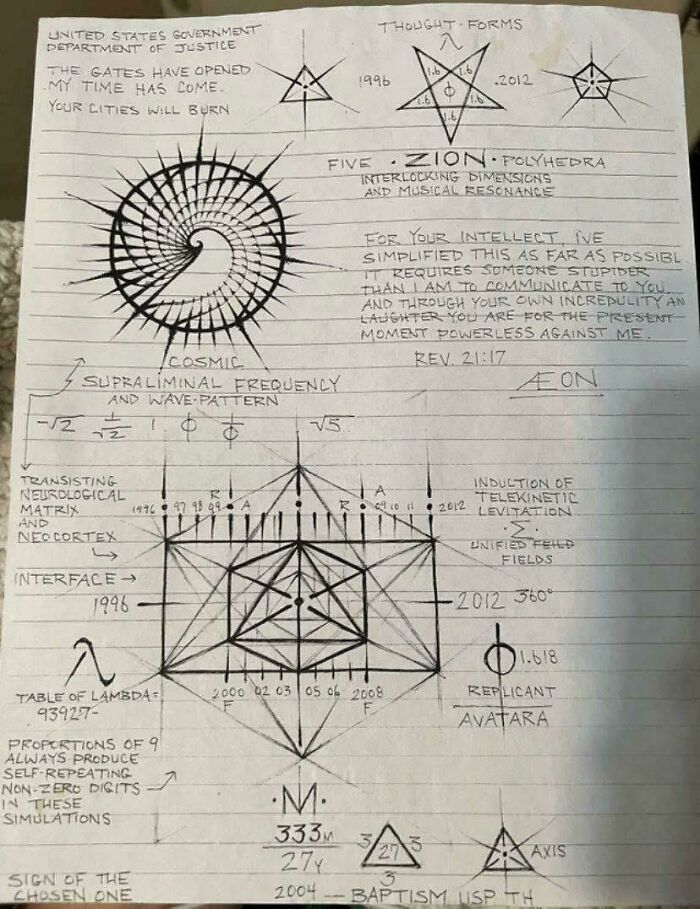 UNITED STATES GOVERNMENT
DEPARTMENT OF JUSTICE
THE GATES HAVE OPENED
.MY TIME HAS COME.
YOUR CITIES WILL BURN
THOUGHT·FORMS
λ
1996
1.6 1.6
1.6 φ 1.6
1.6
.2012
FIVE .ZION. POLYHEDRA
INTERLOCKING DIMENSIONS
AND MUSICAL RESONANCE
FOR YOUR INTELLECT, IVE
SIMPLIFIED THIS AS FAR AS POSSIBL
IT REQUIRES SOMEONE STUPIDER
THAN I AM TO COMMUNICATE TO YOU
AND THROUGH YOUR OWN INCREDULITY AN
LAUGHTER YOU ARE FOR THE PRESENT
MOMENT POWERLESS AGAINST ME.
REV. 21:17
ÆON
COSMIC
SUPRALIMINAL FREQUENCY
AND WAVE-PATTERN
-√2 1/√2 1 φ 1/φ √5
TRANSISTING
NEUROLOGICAL
MATRIX
AND
NEOCORTEX
INTERFACE →
R A
R A
1996 97 98 99
09 10 11 2012
INDUCTION OF
TELEKINETIC
LEVITATION
·Σ·
UNIFIED FEILD
FIELDS
1996
2012 360°
λ
TABLE OF LAMBDA=
93927-
φ 1.618
REPLICANT
AVATARA
2000 02 03 05 06 2008
F F
PROPORTIONS OF 9
ALWAYS PRODUCE
SELF-REPEATING
NON-ZERO DIGITS
IN THESE
SIMULATIONS
·M·
333M
27Y
3 27 3
3
AXIS
SIGN OF THE
CHOSEN ONE
2004 — BAPTISM USP TH